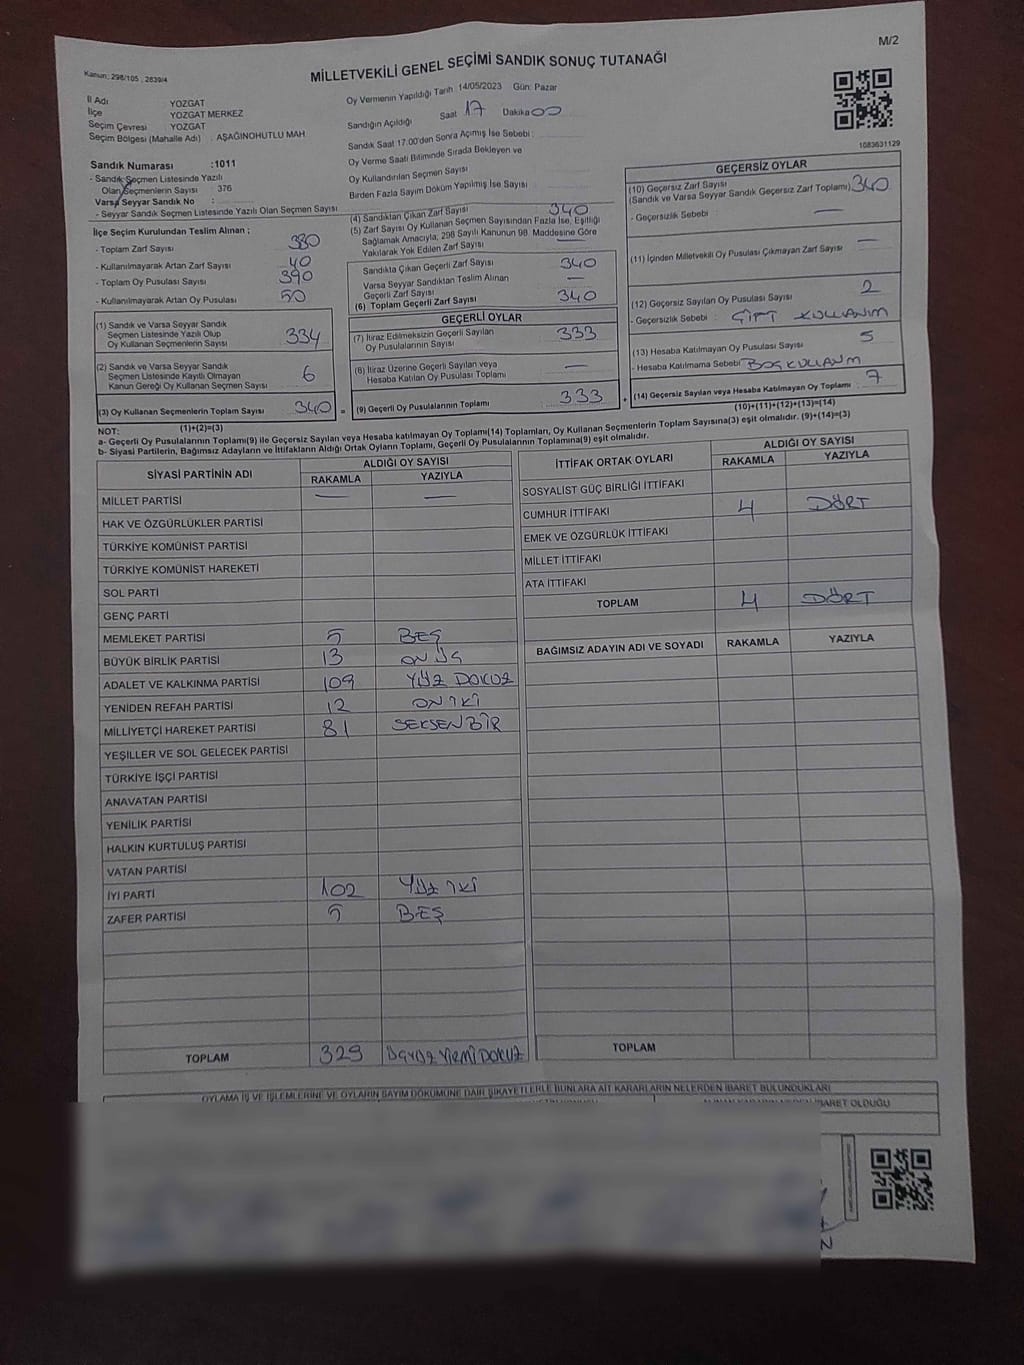 M/2
Kanun: 298/105 , 2839/4
MİLLETVEKİLİ GENEL SEÇİMİ SANDIK SONUÇ TUTANAĞI
İl Adı YOZGAT
İlçe YOZGAT MERKEZ
Seçim Çevresi YOZGAT
Seçim Bölgesi (Mahalle Adı) : AŞAĞINOHUTLU MAH
Oy Vermenin Yapıldığı Tarih 14/05/2023 Gün: Pazar
Sandığın Açıldığı Saat 17 Dakika 00
Sandık Saat 17.00'den Sonra Açımış İse Sebebi :
Oy Verme Saati Bitiminde Sırada Bekleyen ve
Oy Kullandırılan Seçmen Sayısı
Birden Fazla Sayım Döküm Yapılmış İse Sayısı
1083631129
Sandık Numarası :1011
- Sandık Seçmen Listesinde Yazılı
Olan Seçmenlerin Sayısı : 376
Varsa Seyyar Sandık No :
- Seyyar Sandık Seçmen Listesinde Yazılı Olan Seçmen Sayısı
İlçe Seçim Kurulundan Teslim Alınan ;
- Toplam Zarf Sayısı 380
- Kullanılmayarak Artan Zarf Sayısı 40
- Toplam Oy Pusulası Sayısı 390
- Kullanılmayarak Artan Oy Pusulası 50
(1) Sandık ve Varsa Seyyar Sandık
Seçmen Listesinde Yazılı Olup
Oy Kullanan Seçmenlerin Sayısı 334
(2) Sandık ve Varsa Seyyar Sandık
Seçmen Listesinde Kayıtlı Olmayan
Kanun Gereği Oy Kullanan Seçmen Sayısı 6
(3) Oy Kullanan Seçmenlerin Toplam Sayısı : 340 =
(1)+(2)=(3)
(4) Sandıktan Çıkan Zarf Sayısı 340
(5) Zarf Sayısı Oy Kullanan Seçmen Sayısından Fazla İse, Eşitliği
Sağlamak Amacıyla, 298 Sayılı Kanunun 98. Maddesine Göre
Yakılarak Yok Edilen Zarf Sayısı —
Sandıkta Çıkan Geçerli Zarf Sayısı 340
Varsa Seyyar Sandıktan Teslim Alınan
Geçerli Zarf Sayısı —
(6) Toplam Geçerli Zarf Sayısı 340
GEÇERLİ OYLAR
(7) İtiraz Edilmeksizin Geçerli Sayılan
Oy Pusulalarının Sayısı 333
(8) İtiraz Üzerine Geçerli Sayılan veya
Hesaba Katılan Oy Pusulası Toplamı —
(9) Geçerli Oy Pusulalarının Toplamı : 333 +
GEÇERSİZ OYLAR
(10) Geçersiz Zarf Sayısı
(Sandık ve Varsa Seyyar Sandık Geçersiz Zarf Toplamı) 340
- Geçersizlik Sebebi : —
(11) İçinden Milletvekili Oy Pusulası Çıkmayan Zarf Sayısı —
(12) Geçersiz Sayılan Oy Pusulası Sayısı 2
- Geçersizlik Sebebi : ÇİFT KULLANIM
(13) Hesaba Katılmayan Oy Pusulası Sayısı 5
- Hesaba Katılmama Sebebi BOŞ KULLANIM
(14) Geçersiz Sayılan veya Hesaba Katılmayan Oy Toplamı : 7
(10)+(11)+(12)+(13)=(14)
NOT:
a- Geçerli Oy Pusulalarının Toplamı(9) ile Geçersiz Sayılan veya Hesaba katılmayan Oy Toplamı(14) Toplamları, Oy Kullanan Seçmenlerin Toplam Sayısına(3) eşit olmalıdır. (9)+(14)=(3)
b- Siyasi Partilerin, Bağımsız Adayların ve İttifakların Aldığı Ortak Oyların Toplamı, Geçerli Oy Pusulalarının Toplamına(9) eşit olmalıdır.
SİYASİ PARTİNİN ADI ALDIĞI OY SAYISI
RAKAMLA YAZIYLA
MİLLET PARTİSİ — —
HAK VE ÖZGÜRLÜKLER PARTİSİ
TÜRKİYE KOMÜNİST PARTİSİ
TÜRKİYE KOMÜNİST HAREKETİ
SOL PARTİ
GENÇ PARTİ
MEMLEKET PARTİSİ 5 BEŞ
BÜYÜK BİRLİK PARTİSİ 13 ON ÜÇ
ADALET VE KALKINMA PARTİSİ 109 YÜZ DOKUZ
YENİDEN REFAH PARTİSİ 12 ON İKİ
MİLLİYETÇİ HAREKET PARTİSİ 81 SEKSEN BİR
YEŞİLLER VE SOL GELECEK PARTİSİ
TÜRKİYE İŞÇİ PARTİSİ
ANAVATAN PARTİSİ
YENİLİK PARTİSİ
HALKIN KURTULUŞ PARTİSİ
VATAN PARTİSİ
İYİ PARTİ 102 YÜZ İKİ
ZAFER PARTİSİ 5 BEŞ
TOPLAM 329 ÜÇYÜZ YİRMİ DOKUZ
İTTİFAK ORTAK OYLARI ALDIĞI OY SAYISI
RAKAMLA YAZIYLA
SOSYALİST GÜÇ BİRLİĞİ İTTİFAKI
CUMHUR İTTİFAKI 4 DÖRT
EMEK VE ÖZGÜRLÜK İTTİFAKI
MİLLET İTTİFAKI
ATA İTTİFAKI
TOPLAM 4 DÖRT
BAĞIMSIZ ADAYIN ADI VE SOYADI RAKAMLA YAZIYLA
TOPLAM
OYLAMA İŞ VE İŞLEMLERİNE VE OYLARIN SAYIM DÖKÜMÜNE DAİR ŞİKAYETLERLE BUNLARA AİT KARARLARIN NELERDEN İBARET BULUNDUKLARI
İBARET OLDUĞU